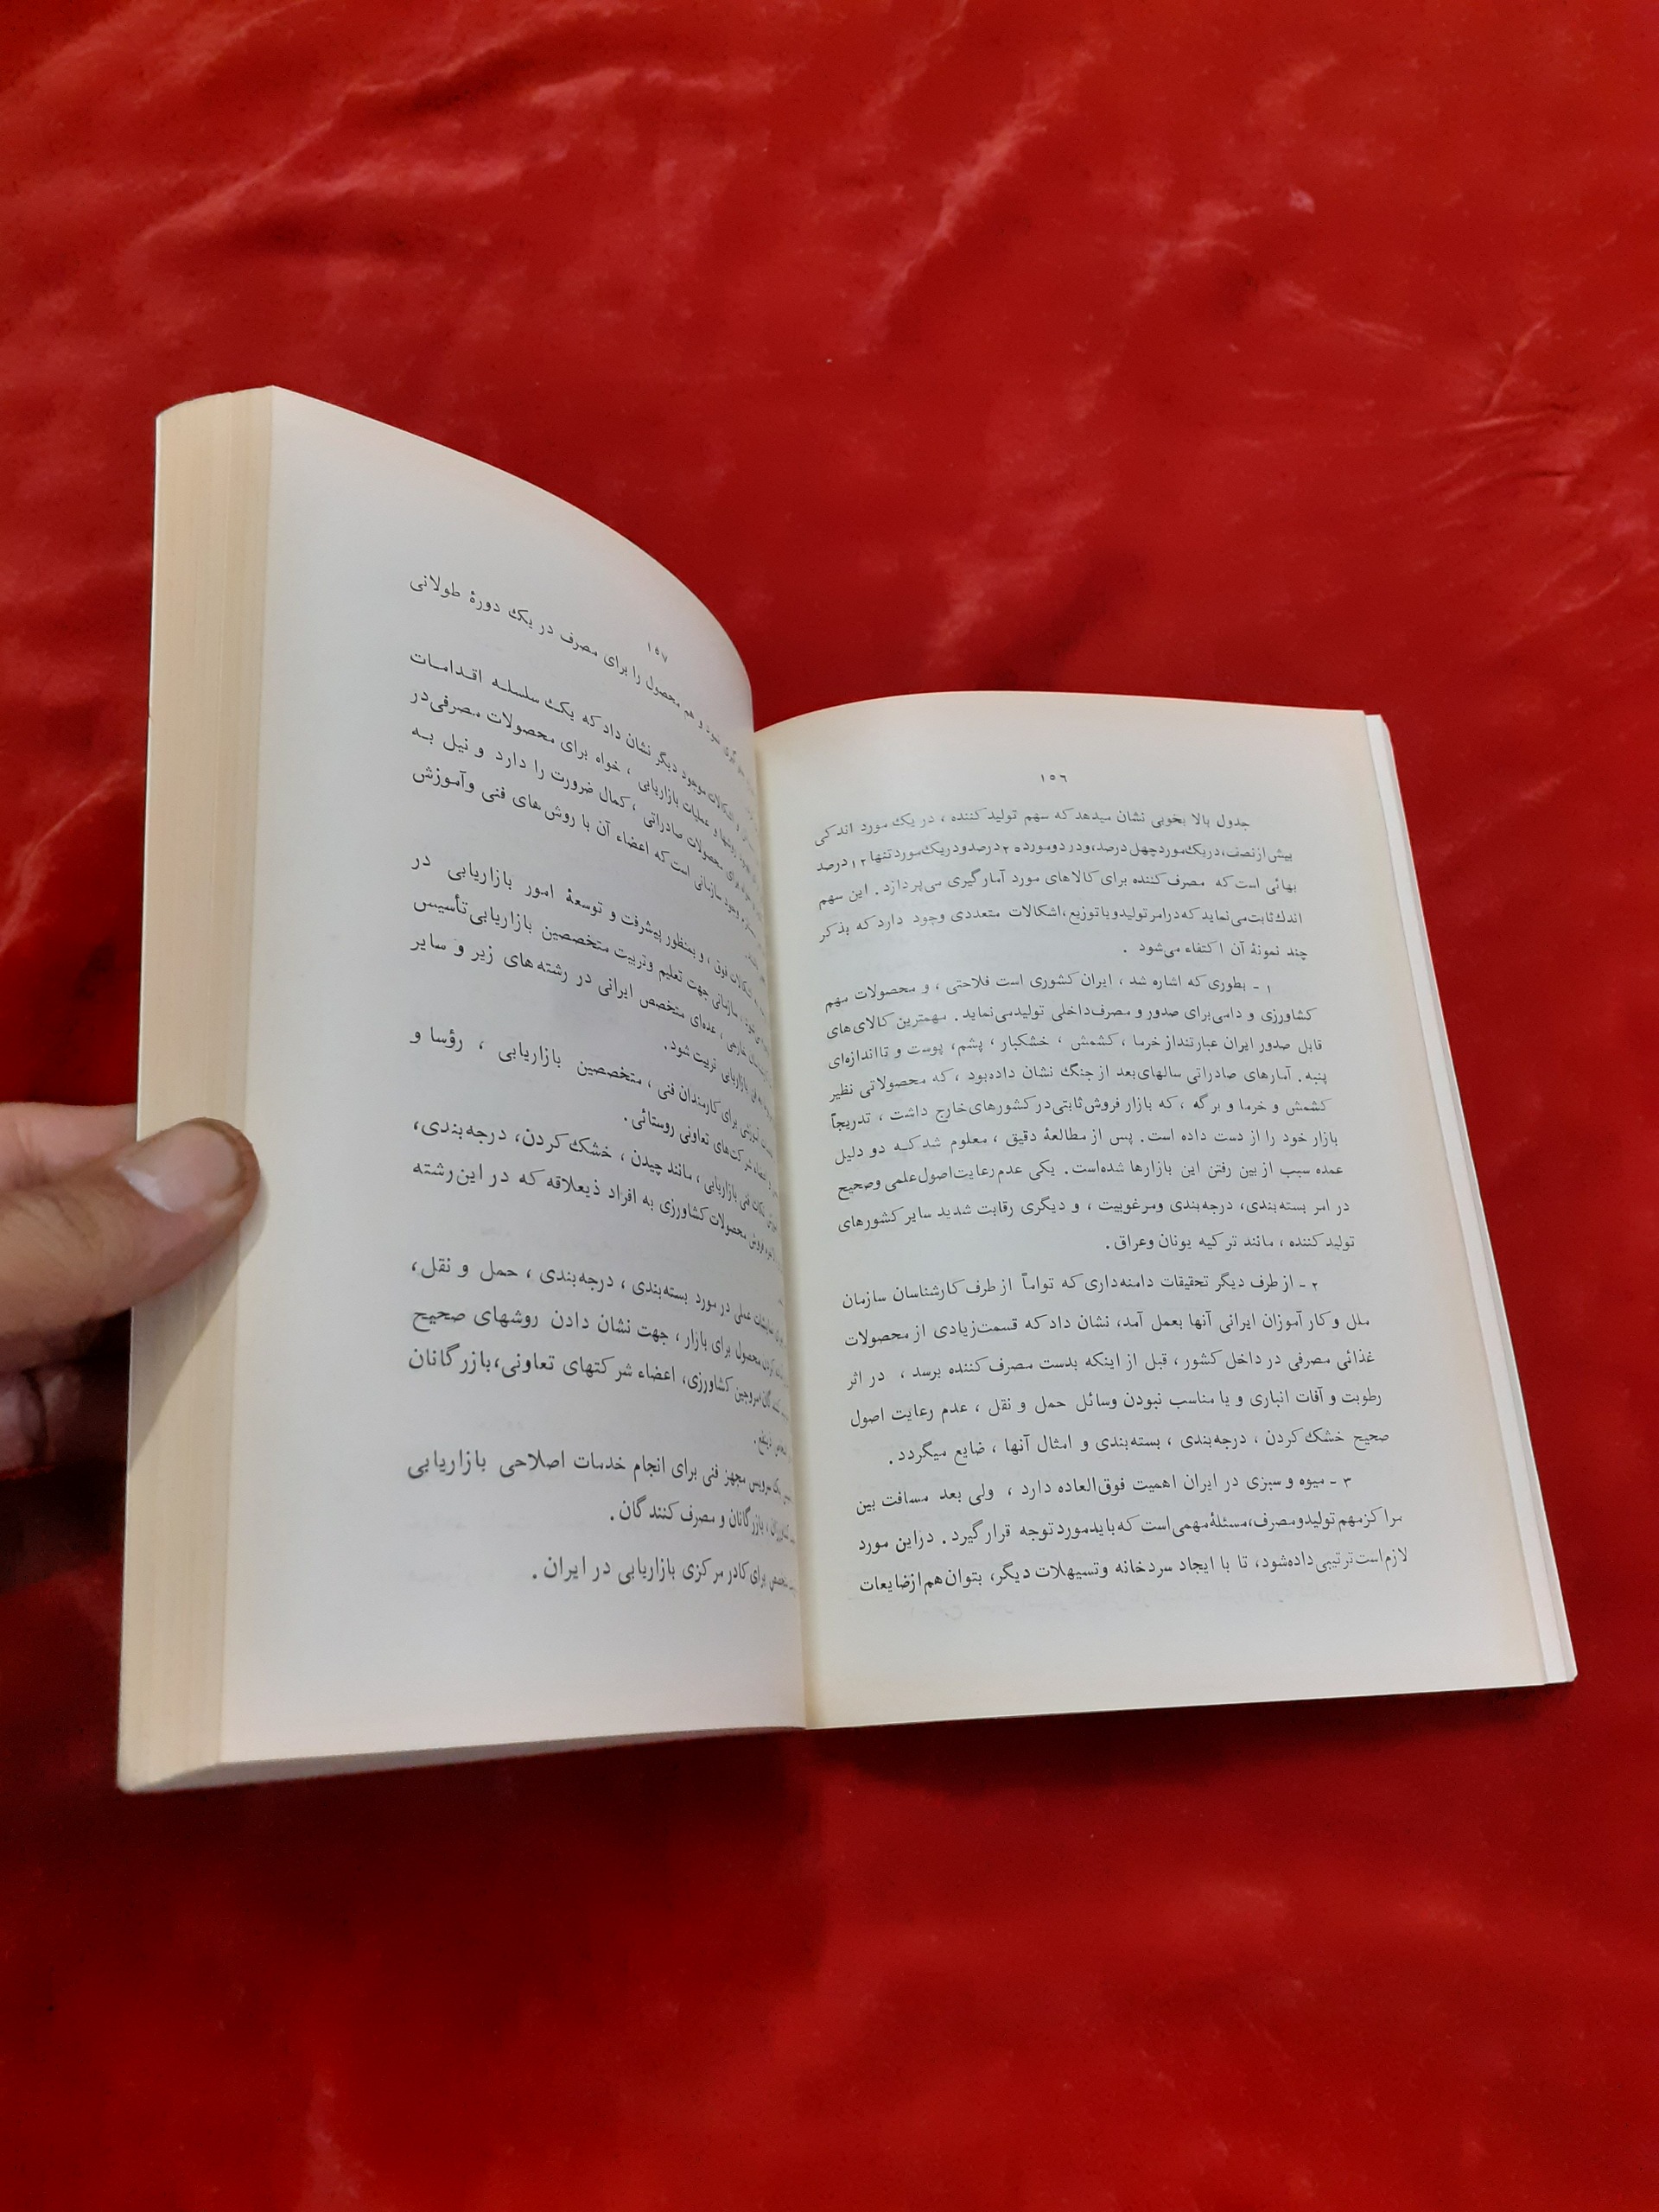 ١٥٦
جدول بالا بخوبی نشان میدهد که سهم تولید کننده ، در یک مورد اندکی
بیش از نصف، در یک مورد چهل درصد، و در دو مورد ٢٥ درصد و در یک مورد تنها ١٢ درصد
بهائی است که مصرف کننده برای کالاهای مورد آمارگیری می‌پردازد . این سهم
اندک ثابت می‌نماید که در امر تولید و یا توزیع، اشکالات متعددی وجود دارد که بذکر
چند نمونهٔ آن اکتفاء می‌شود .
١ - بطوری که اشاره شد ، ایران کشوری است فلاحتی ، و محصولات مهم
کشاورزی و دامی برای صدور و مصرف داخلی تولید می‌نماید . مهمترین کالای‌های
قابل صدور ایران عبارتند از خرما ، کشمش ، خشکبار ، پشم، پوست و تا اندازه‌ای
پنبه . آمارهای صادراتی سالهای بعد از جنگ نشان داده بود ، که محصولاتی نظیر
کشمش و خرما و برگه ، که بازار فروش ثابتی در کشورهای خارج داشت ، تدریجاً
بازار خود را از دست داده است . پس از مطالعهٔ دقیق ، معلوم شد کـه دو دلیل
عمده سبب از بین رفتن این بازارها شده‌است . یکی عدم رعایت اصول علمی وصحیح
در امر بسته‌بندی، درجه‌بندی ومرغوبیت ، و دیگری رقابت شدید سایر کشورهای
تولید کننده ، مانند ترکیه یونان وعراق .
٢ - از طرف دیگر تحقیقات دامنه‌داری که تواماً از طرف کارشناسان سازمان
ملل و کارآموزان ایرانی آنها بعمل آمد، نشان داد که قسمت زیادی از محصولات
غذائی مصرفی در داخل کشور ، قبل از اینکه بدست مصرف کننده برسد ، در اثر
رطوبت و آفات انباری و یا مناسب نبودن وسائل حمل و نقل ، عدم رعایت اصول
صحیح خشک کردن ، درجه‌بندی ، بسته‌بندی و امثال آنها ، ضایع میگردد .
٣ - میوه و سبزی در ایران اهمیت فوق‌العاده دارد ، ولی بعد مسافت بین
مراکز مهم تولید و مصرف، مسئلهٔ مهمی است که باید مورد توجه قرار گیرد . در این مورد
لازم است ترتیبی داده شود، تا با ایجاد سردخانه وتسهیلات دیگر، بتوان هم از ضایعات
١٥٧
شود و هم محصول را برای مصرف در یک دورهٔ طولانی
اشکالات موجود دیگر نشان داد که یک سلسلـه اقـدامـات
روشها و عملیات بازاریابی ، خواه برای محصولات مصرفی در
برای محصولات صادراتی ، کمال ضرورت را دارد و نیل بـه
وجود سازمانی است که اعضاء آن با روش‌های فنی وآموزش
اشکالات فوق ، و بمنظور پیشرفت و توسعهٔ امور بازاریابی در
سازمانی جهت تعلیم وتربیت متخصصین بازاریابی تأسیس
خارجی ، عده‌ای متخصص ایرانی در رشته‌های زیر و سایر
بازاریابی تربیت شود .
آموزشی برای کارمندان فنی ، متخصصین بازاریابی ، رؤسا و
شرکت‌های تعاونی روستائی .
نکات فنی بازاریابی ، مانند چیدن ، خشک کردن، درجه‌بندی،
فروش محصولات کشاورزی به افراد ذیعلاقه که در این رشته
نمایشات عملی در مورد بسته‌بندی ، درجه‌بندی ، حمل و نقل،
کردن محصول برای بازار ، جهت نشان دادن روشهای صحیح
کشاورزی، اعضاء شرکتهای تعاونی، بازرگانان
ذینفع .
یک سرویس مجهز فنی برای انجام خدمات اصلاحی بازاریابی
بازرگانان و مصرف کنندگان .
متخصص برای کادر مرکزی بازاریابی در ایران .